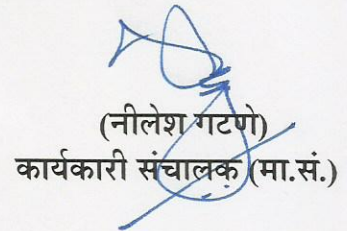 (नीलेश गटणे)
कार्यकारी संचालक (मा.सं.)